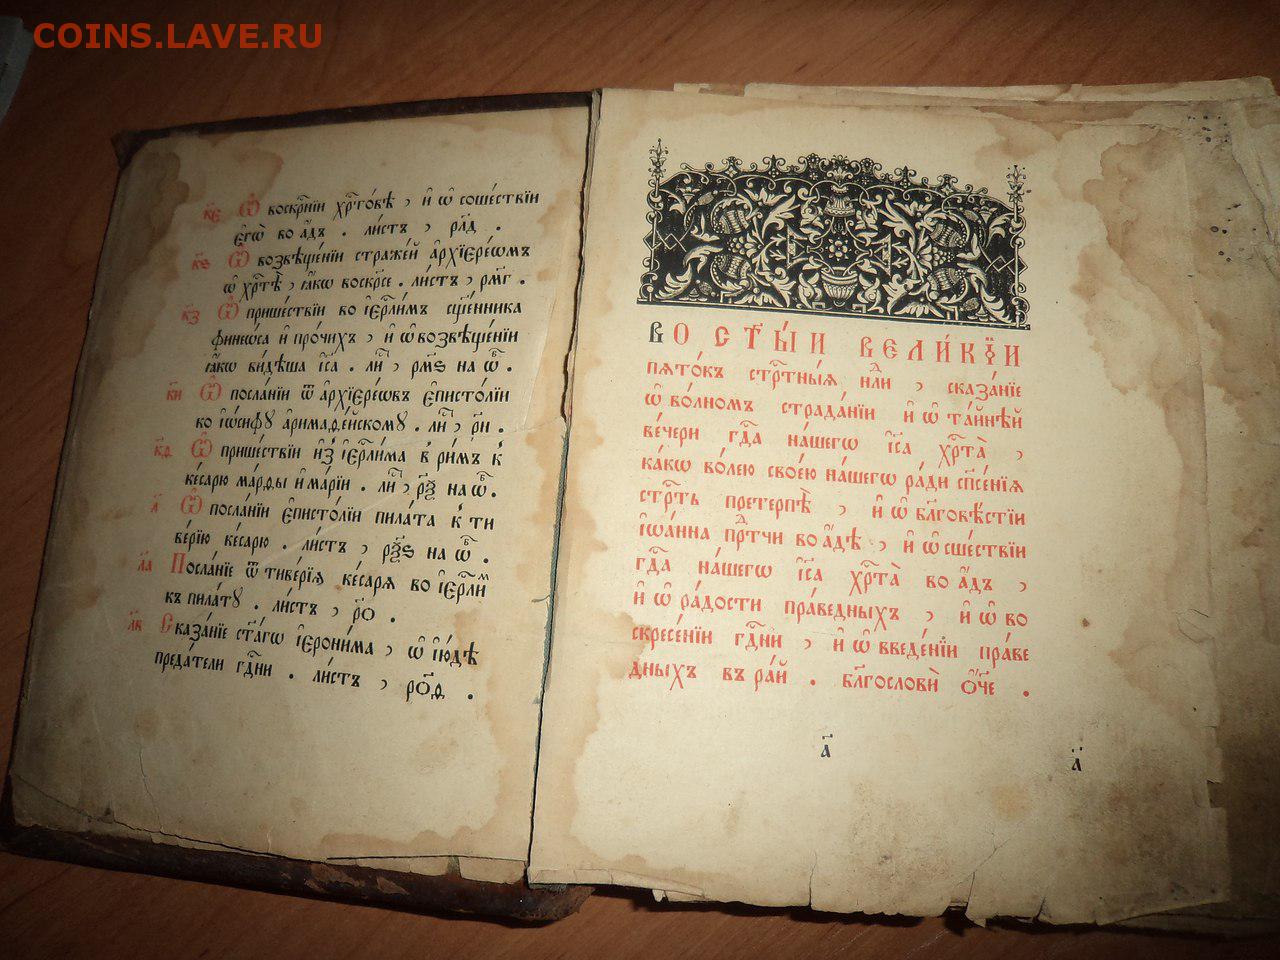 COINS.LAVE.RU
к҃е Ѡ воскр҃нїи хр҃то́вѣ , и҆ ѡ҆ сошествїи
є҆гѡ̀ во а҆́дъ . ли́стъ , рл҃д .
к҃ѕ Ѡ возвѣще́нїи стражѐй а҆рхїере́ѡмъ
ѡ҆ хр҃тѣ̀ , ꙗ҆́кѡ воскр҃се . ли́стъ , рм҃г .
к҃з Ѡ прише́ствїи во і҆ер҃ли́мъ сщ҃е́нника
финеѡ́са и҆ про́чихъ , и҆ ѡ҆ возвѣще́нїи
ꙗ҆́кѡ ви́дѣша і҆с҃а . ли́ , рм҃ѕ на ѡ҆б .
к҃и Ѡ посла́нїи ѿ а҆рхїере́ѡвъ є҆писто́лїи
ко і҆ѡ́сифꙋ а҆римаѳе́йскомꙋ . ли́ , рн҃ .
к҃ѳ Ѡ прише́ствїи и҆з̾ і҆ер҃ли́ма в̾ ри́мъ к̾
ке́сарю ма́рѳы и҆ мар́їи . ли́ , рѯ҃ на ѡ҆б .
л҃ Ѡ посла́нїи є҆писто́лїи пила́та к̾ ти
ве́рїю ке́сарю . ли́стъ , рѯ҃ѕ на ѡ҆б .
л҃а Посла́нїе ѿ тиве́рїѧ ке́сарѧ во і҆ер҃ли́м
къ пила́тꙋ . ли́стъ , ро҃ .
л҃в Сказа́нїе ст҃а́гѡ і҆ерони́ма , ѡ҆ і҆ю́дѣ
преда́тели гд҃ни . ли́стъ , ро҃ѳ .
Во ст҃ы́и вели́кїи
пѧто́къ стр҃тны́ѧ нд҃ли , сказа́нїе
ѡ҆ во́лномъ страда́нїи и҆ ѡ҆ та́йнѣй
ве́чери гд҃а на́шегѡ і҆с҃а хр҃та̀ ,
ка́кѡ во́лею свое́ю на́шегѡ ра́ди сп҃се́нїѧ
стр҃ть претерпѣ̀ , и҆ ѡ҆ бл҃говѣ́стїи
і҆ѡа́нна пр҃дтчи во а҆́дѣ , и҆ ѡ҆ сше́ствїи
гд҃а на́шегѡ і҆с҃а хр҃та̀ во а҆́дъ ,
и҆ ѡ҆ ра́дости пра́ведныхъ , и҆ ѡ҆ во
скресе́нїи гд҃ни , и҆ ѡ҆ введе́нїи пра́ве
дныхъ въ ра́й . бл҃гословѝ ѻ҆́ч҃е .
а҃
а҃